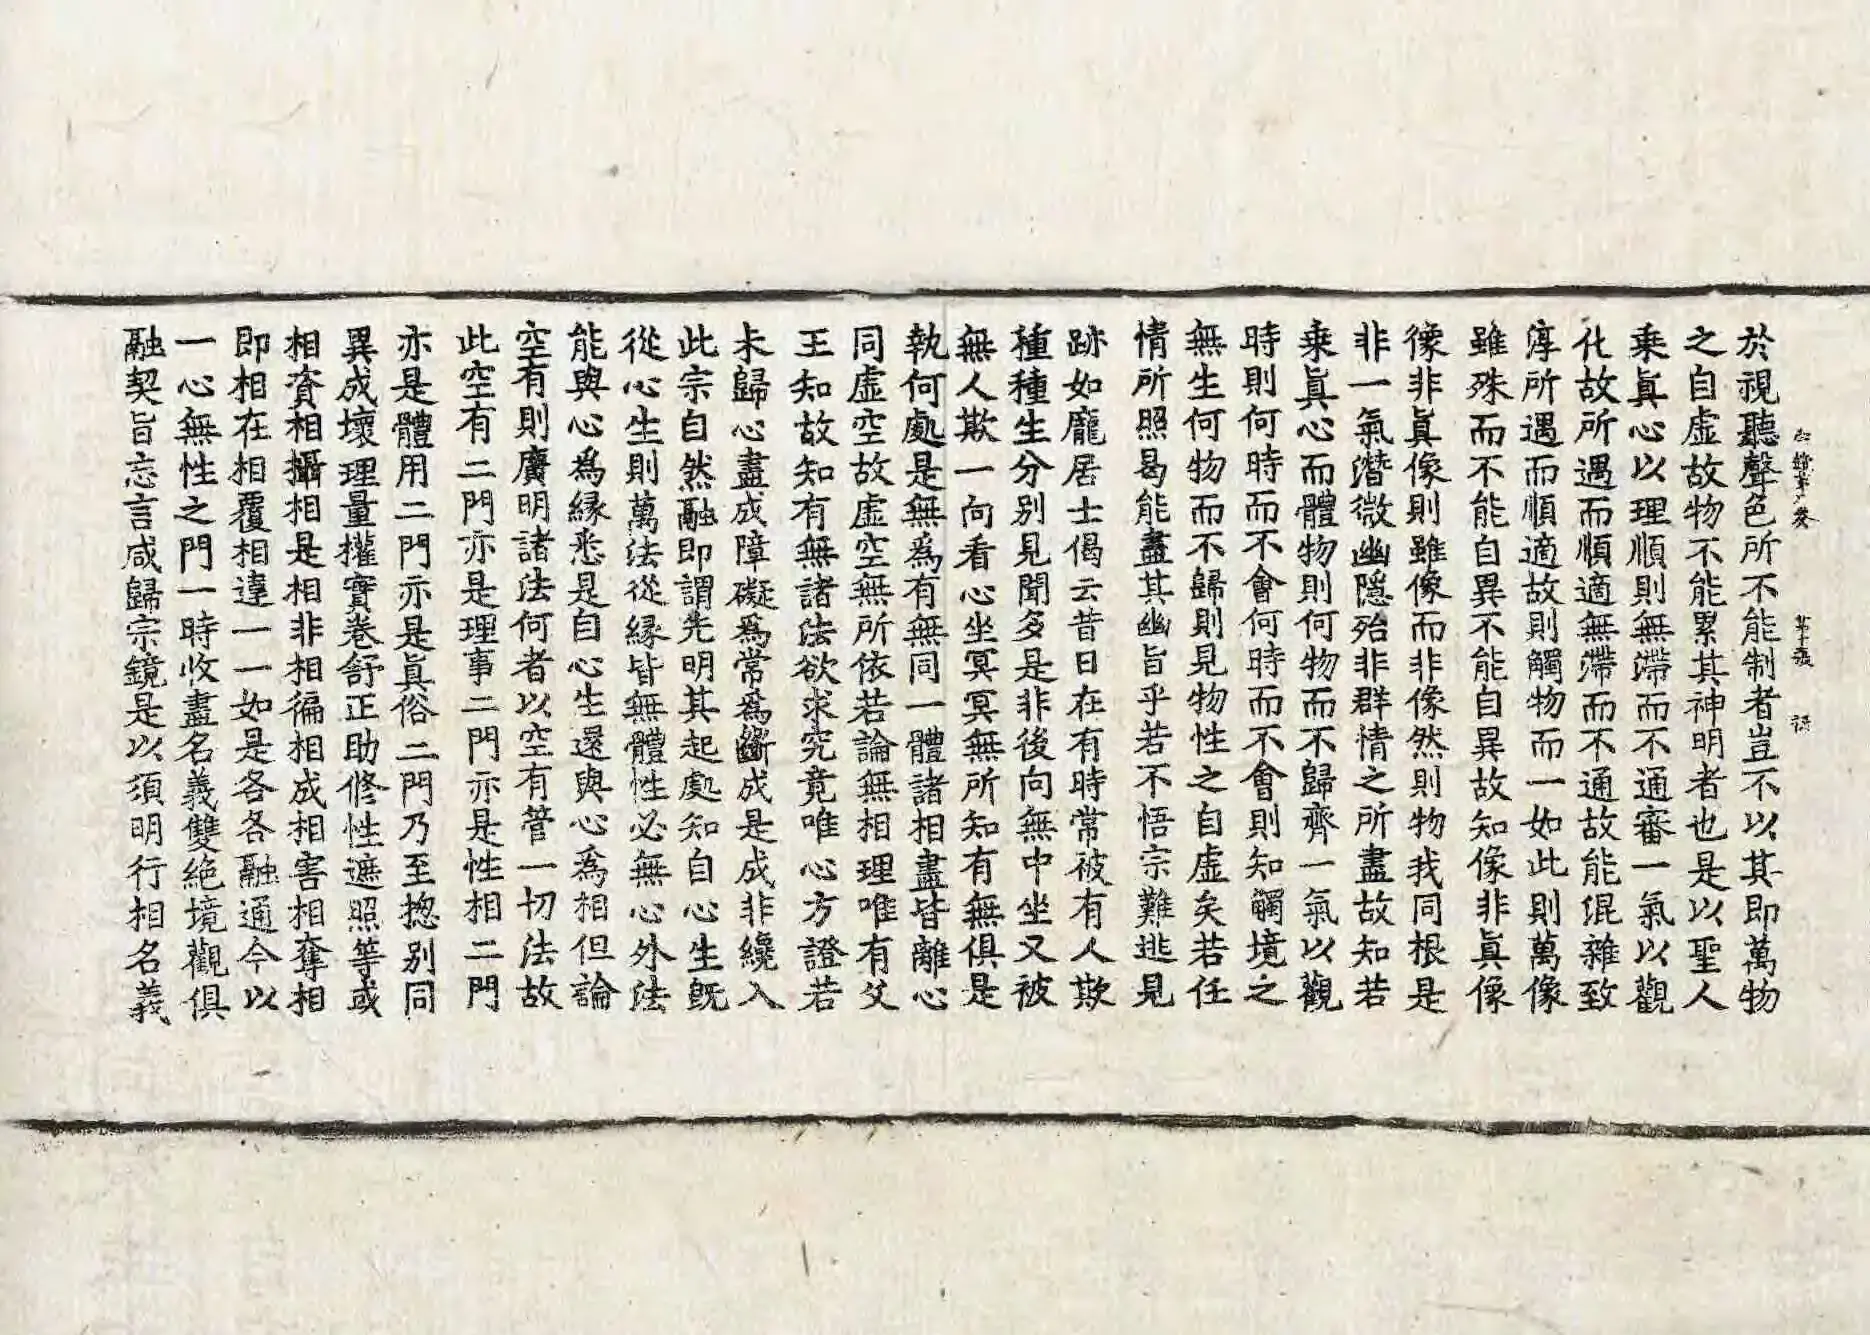 第十張
於視聽聲色所不能制者豈不以其即萬物
之自虛故物不能累其神明者也是以聖人
乗眞心以理順則無滯而不通審一氣以觀
化故所遇而順適無滯而不通故能混雜致
淳所遇而順適故則觸物而一如此則萬像
雖殊而不能自異不能自異故知像非眞像
像非眞像則雖像而非像然則物我同根是
非一氣潛微幽隱殆非群情之所盡故知若
乗眞心而體物則何物而不歸齊一氣以觀
時則何時而不會何時而不會則知觸境之
無生何物而不歸則見物性之自虛矣若任
情所照曷能盡其幽旨乎若不悟宗難逃見
跡如龐居士偈云昔日在有時常被有人欺
種種生分別見聞多是非後向無中坐又被
無人欺一向看心坐冥冥無所知有無俱是
執何處是無為有無同一體諸相盡皆離心
同虛空故虛空無所依若論無相理唯有父
王知故知有無諸法欲求究竟唯心方證若
未歸心盡成障礙為常為斷成是成非纔入
此宗自然融即謂先明其起處知自心生既
從心生則萬法從緣皆無體性必無心外法
能與心為緣悉是自心生還與心為相但論
空有則廣明諸法何者以空有管一切法故
此空有二門亦是理事二門亦是性相二門
亦是體用二門亦是眞俗二門乃至揔別同
異成壞理量權實卷舒正助修性遮照等或
相資相攝相是相非相徧相成相害相奪相
即相在相覆相違一一如是各各融通今以
一心無性之門一時收盡名義雙絶境觀俱
融契旨忘言咸歸宗鏡是以須明行相名義